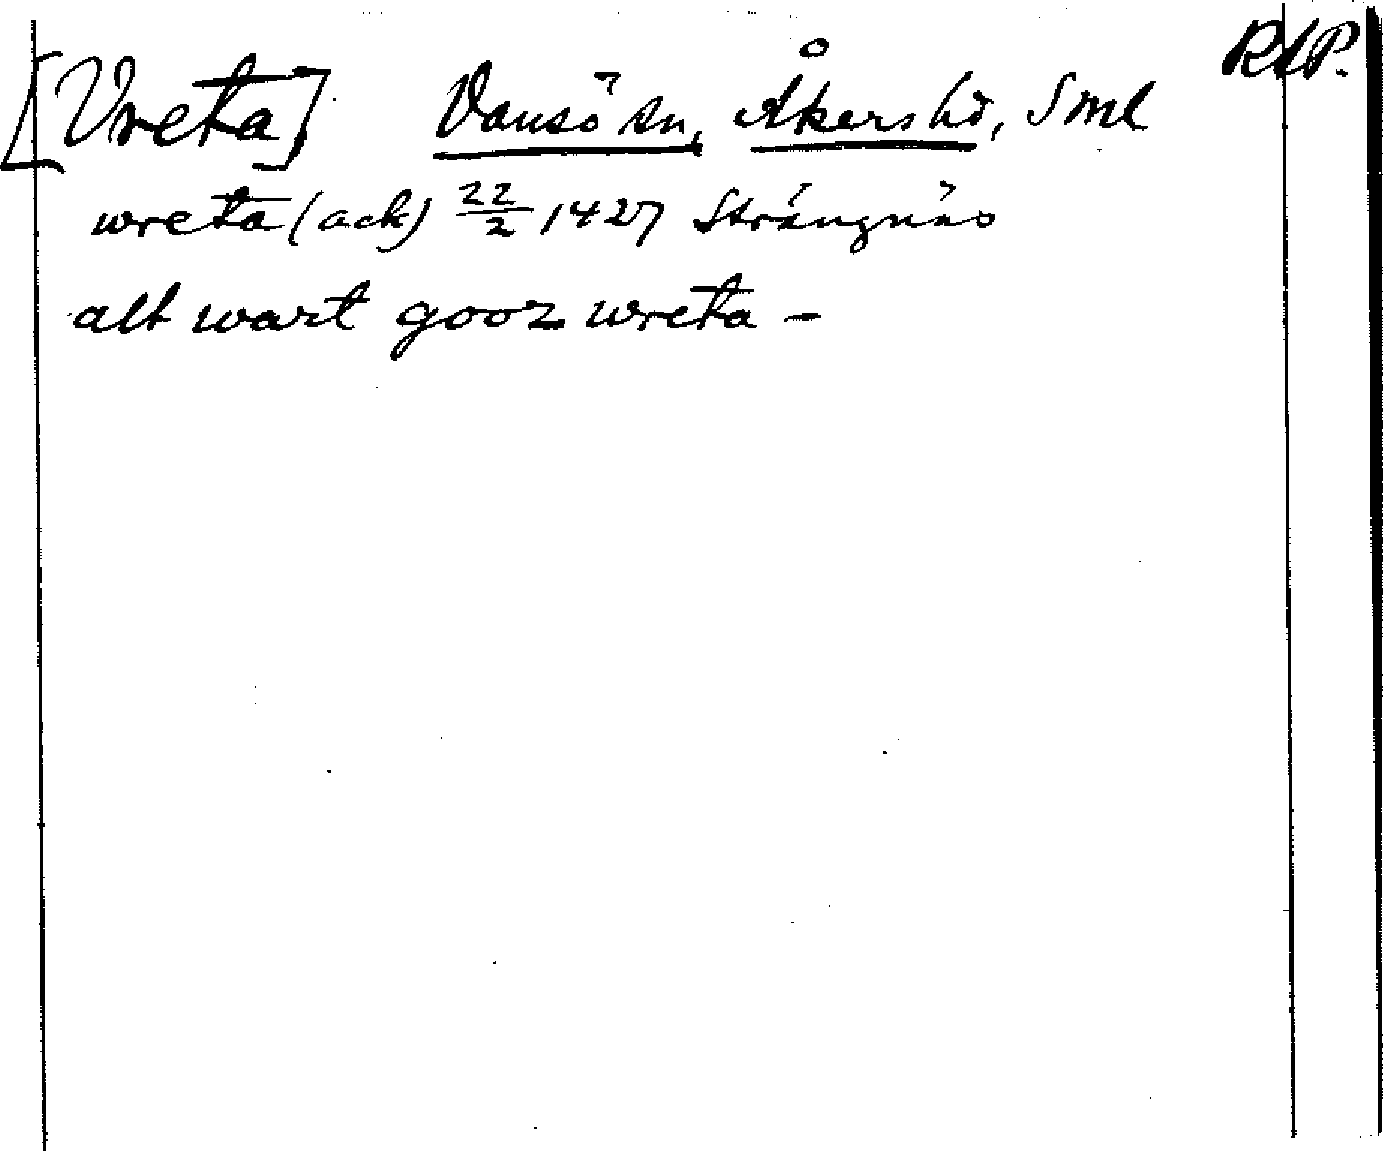 [Vreta] Vansö sn, Åkers hd, Sml RAP.
wreta (ack) 22/2 1427 Strängnäs
alt wart gooz wreta -